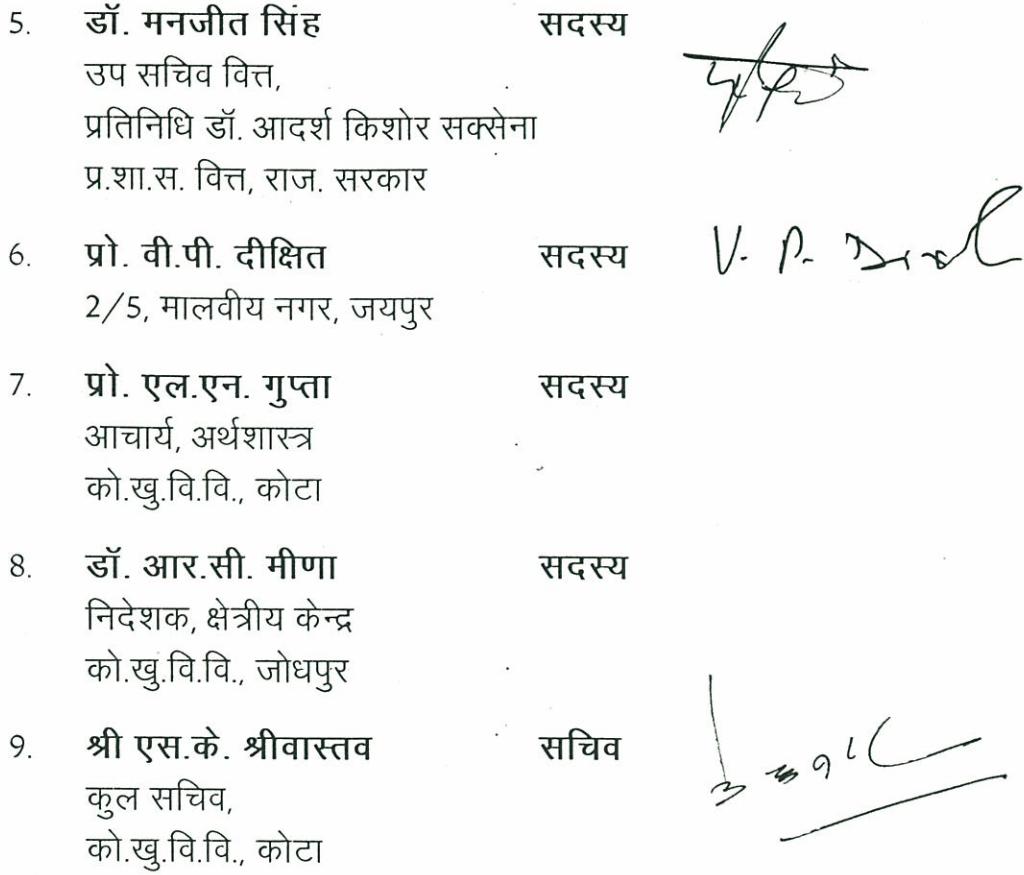 5. डॉ. मनजीत सिंह सदस्य
उप सचिव वित्त,
प्रतिनिधि डॉ. आदर्श किशोर सक्सेना
प्र.शा.स. वित्त, राज. सरकार
6. प्रो. वी.पी. दीक्षित सदस्य V. P.
2/5, मालवीय नगर, जयपुर
7. प्रो. एल.एन. गुप्ता सदस्य
आचार्य, अर्थशास्त्र
को.खु.वि.वि., कोटा
8. डॉ. आर.सी. मीणा सदस्य
निदेशक, क्षेत्रीय केन्द्र
को.खु.वि.वि., जोधपुर
9. श्री एस.के. श्रीवास्तव सचिव
कुल सचिव,
को.खु.वि.वि., कोटा